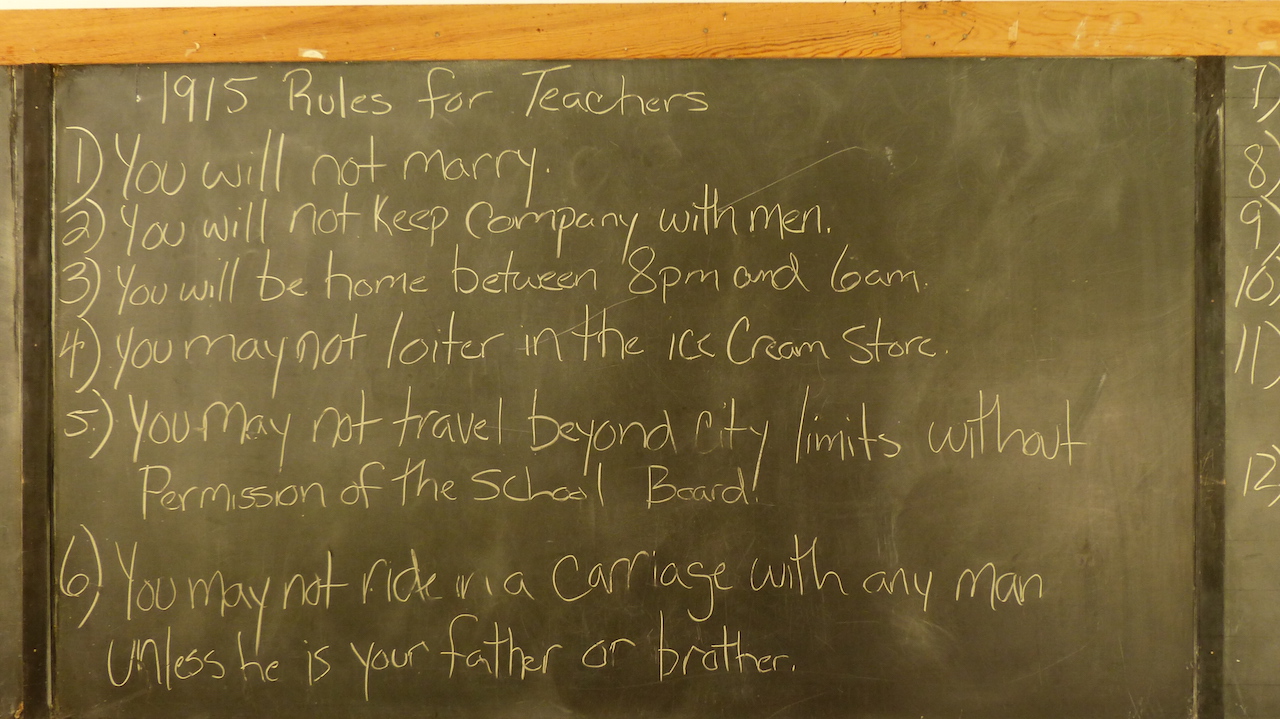 1915 Rules for Teachers
1) You will not marry.
2) You will not keep company with men.
3) You will be home between 8pm and 6am.
4) You may not loiter in the ice cream store.
5.) You may not travel beyond city limits without
Permission of the School Board.
6) You may not ride in a carriage with any man
unless he is your father or brother.
7)
8)
9)
10)
11)
12)